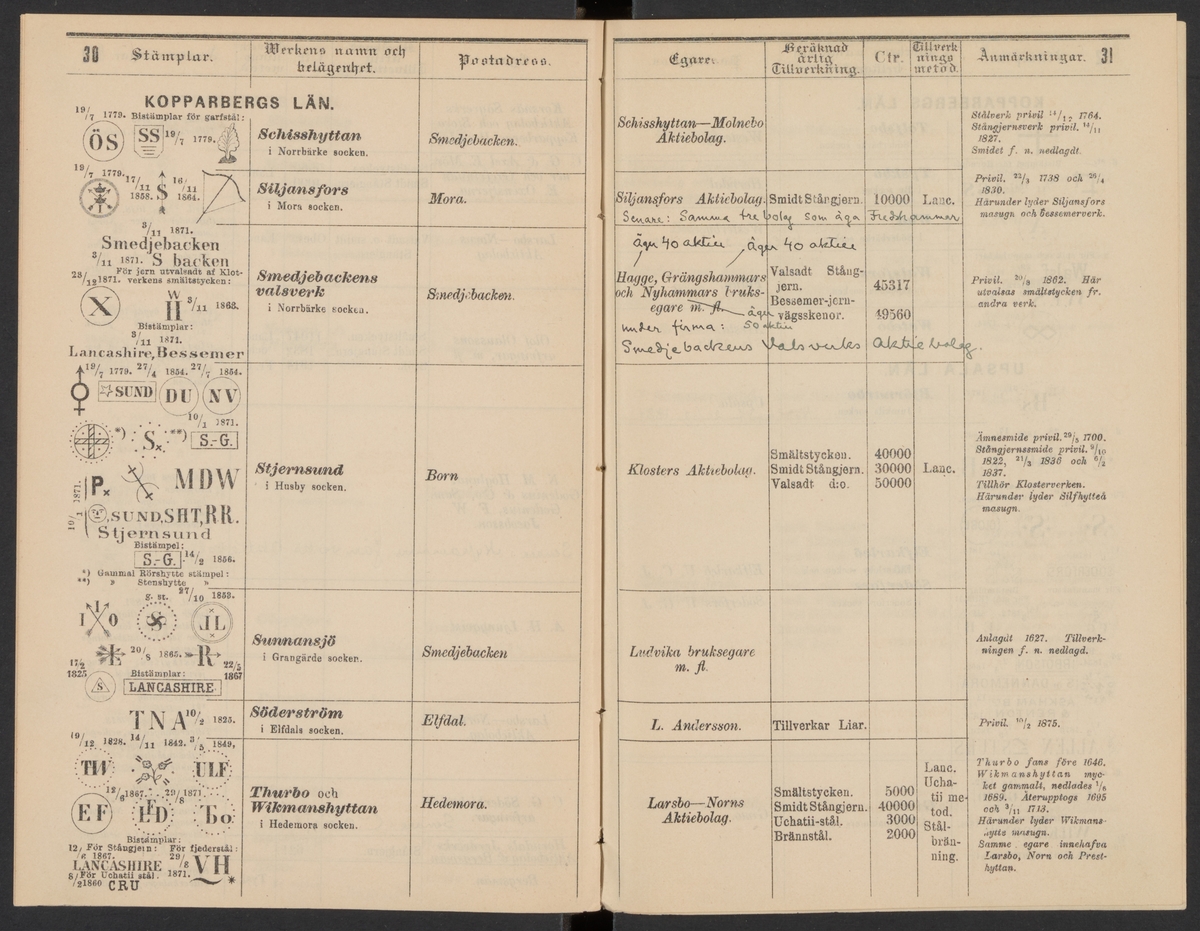 30 Stämplar.
Werkens namn och
belägenhet.
Postadress.
KOPPARBERGS LÄN.
19/7 1779. Bistämplar för garfstål:
ÖS SS 19/7 1779.
Schisshyttan
i Norrbärke socken.
Smedjebacken.
19/7 1779. 17/11 1858. S 16/11 1864.
Siljansfors
i Mora socken.
Mora.
3/11 1871.
Smedjebacken
3/11 1871. S backen
23/12 1871. För jern utvalsadt af Klot-
verkens smältstycken:
X W H 3/11 1863.
Bistämplar:
3/11 1871.
Lancashire, Bessemer
Smedjebackens
valsverk
i Norrbärke socken.
Smedjebacken.
19/7 1779. 27/4 1854. 27/7 1854.
SUND DU NV
10/1 1871.
*) S× **) S.-G.
10/1 1871. P× MDW
SUND, SHT, RR.
Stjernsund
Bistämpel:
S.-G. 14/2 1856.
*) Gammal Rörshytte stämpel:
**) » Stenshytte »
Stjernsund
i Husby socken.
Born
g. st. 27/10 1853.
I I O S JL
20/8 1865. R
1825 22/5 1867
Bistämplar:
S LANCASHIRE
Sunnansjö
i Grangärde socken.
Smedjebacken
TNA 10/2 1825.
Söderström
i Elfdals socken.
Elfdal.
19/12 1828. 14/11 1842. 3/5 1849.
TW ULF
12/6 1867. 29/8 1871.
EF HD Bo
Bistämplar:
12/6 1867. För Stångjern: För fjederstål:
LANCASHIRE 29/8 1871. VH
8/2 1860 För Uchatii stål:
CRU
Thurbo och
Wikmanshyttan
i Hedemora socken.
Hedemora.
Egare.
Beräknad
årlig
Tillverkning.
Ctr.
Tillverk
nings
metod.
Anmärkningar. 31
Schisshyttan—Molnebo
Aktiebolag.
Stålverk privil 14/12 1764.
Stångjernsverk privil. 14/11
1827.
Smidet f. n. nedlagdt.
Siljansfors Aktiebolag. Smidt Stångjern. 10000 Lanc.
Senare: Samma tre bolag som äga Fredshammar
Privil. 22/3 1738 och 26/4
1830.
Härunder lyder Siljansfors
masugn och Bessemerverk.
äger 40 aktier äger 40 aktier
Hagge, Grängshammars
och Nyhammars bruks-
egare m. fl. äger
50 aktier
under firma:
Smedjebackens Valsverks Aktiebolag.
Valsadt Stång-
jern. 45317
Bessemer-jern-
vägsskenor. 49560
Privil. 20/9 1862. Här
utvalsas smältstycken fr.
andra verk.
Klosters Aktiebolag.
Smältstycken. 40000
Smidt Stångjern. 30000 Lanc.
Valsadt d:o. 50000
Ämnesmide privil. 29/3 1700.
Stångjernssmide privil. 9/10
1822, 21/3 1836 och 6/2
1837.
Tillhör Klosterverken.
Härunder lyder Silfhytteå
masugn.
Ludvika bruksegare
m. fl.
Anlagdt 1627. Tillverk-
ningen f. n. nedlagd.
L. Andersson. Tillverkar Liar.
Privil. 10/2 1875.
Larsbo—Norns
Aktiebolag.
Smältstycken. 5000
Smidt Stångjern. 40000
Uchatii-stål. 3000
Brännstål. 2000
Lanc.
Ucha-
tii me-
tod.
Stål-
brän-
ning.
Thurbo fans före 1646.
Wikmanshyttan myc-
ket gammalt, nedlades 1/6
1689. Återupptogs 1695
och 3/11 1713.
Härunder lyder Wikmans-
hytte masugn.
Samme egare innehafva
Larsbo, Norn och Prest-
hyttan.